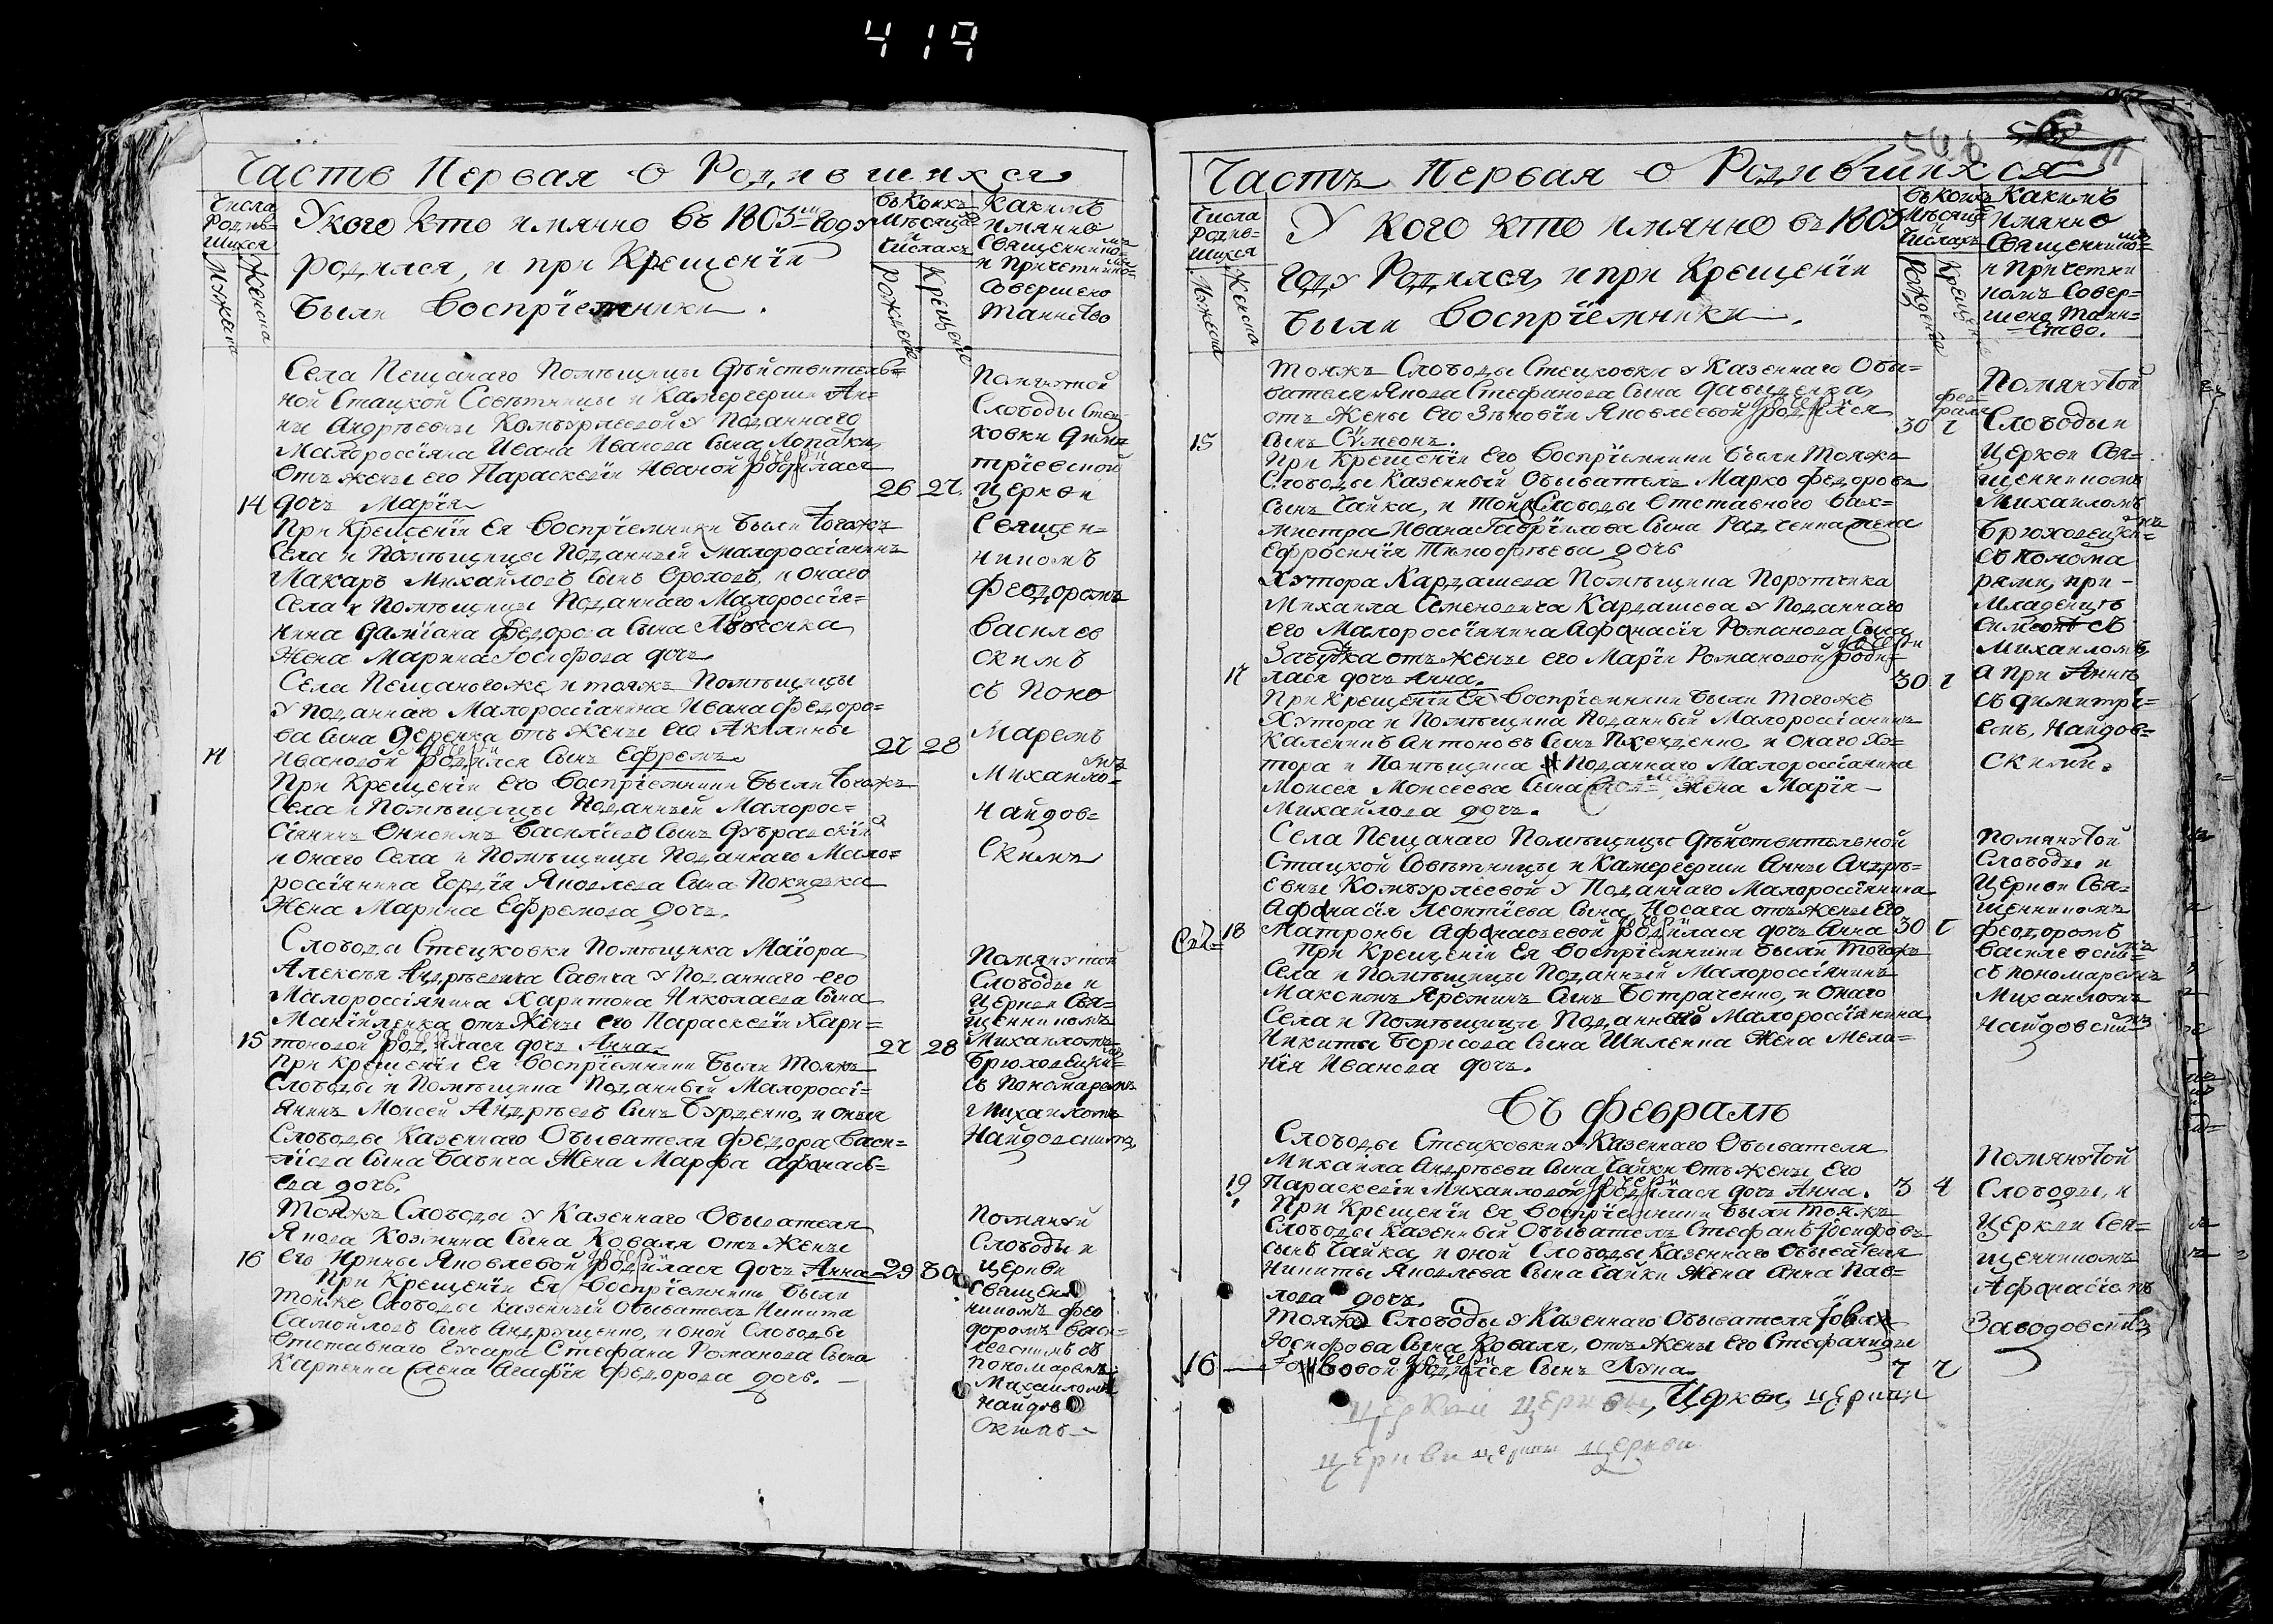 419
Часть Первая о Родившихся
Числа Родившихся
Мужеска
Женска
У кого кто имянно въ 1805м году
родился, и при Крещенїи
были Воспрїемники.
въ Коихъ Мѣсяца и Числахъ
Рожденїе
Крещенїе
Какимъ
имянно
Священникомъ
и Причетникомъ
Совершено
Таинство
Села Пещанаго Помѣщицы Дѣйствитель=
ной Стацкой Совѣтницы и Камергерши Ан=
ны Андрѣевны Комбурлеевой у Поданнаго
Малороссїяна Ивана Иванова Сына Лопатки
Отъ жены его Параскевїи Ивановой родилася
14 дочь Марїя 26 27
При Крещенїи Ея Воспрїемники были тогожъ
Села и Помѣщицы Поданный Малороссїянинъ
Макаръ Михайловъ Сынъ Ороховъ, и онаго
Села и Помѣщицы Поданнаго Малороссїя=
нина Дамїана Федорова Сына
Жена Марина Іосифова дочь
Помянутой
Слободы Стец
ковки Дими
трїевской
Церкви
Священ=
никомъ
Феодоромъ
Василев
скимъ
съ Поно
маремъ
Михаиломъ
Найдов=
Скимъ
Села Пещаногоже, и тояжъ Помѣщицы
у Поданнаго Малороссїанина Ивана Федоро=
ва Сына Деренка отъ жены его Акилины
14 Ивановой родился Сынъ Ефремъ 27 28
При Крещенїи Его Воспрїемники были тогожъ
Села и Помѣщицы Поданный Малорос=
сїянинъ Онисимъ Василїевъ Сынъ Дубравскїй
и онаго Села и Помѣщицы Поданнаго Мало=
россїянина Гордїя Яковлева Сына Покидька
Жена Марина Ефремова дочь.
Слободы Стецковки Помѣщика Маїора
Алексѣя Андрѣевича Савича у Поданнаго его
Малороссїянина Харитона Николаева Сына
Манїйленка отъ жены его Параскевїи Хари=
15 тоновой родилася дочь Анна. 27 28
При Крещенїи Ея Воспрїемники были тояжъ
Слободы и Помѣщика Поданный Малороссї=
янинъ Моисей Андрѣевъ Сынъ Бурденко, и оныя
Слободы Казеннаго Обывателя Федора Васи=
лїева Сына Бабича Жена Марфа Афанась=
ева дочь.
Помянутой
Слободы и
Церкви Свя=
щенникомъ
Михаиломъ
Брюховецки=
съ Пономаремъ
Михаиломъ
Найдовскимъ
Тояжъ Слободы у Казеннаго Обывателя
Якова Козмина Сына Коваля отъ Жены
16 его Ирины Яковлевой родилася дочь Анна 29 30
При Крещенїи Ея Воспрїемники были
Тойже Слободы казенный Обыватель Никита
Самойловъ Сынъ Андрущенко, и оной Слободы
Отставнаго Стефана Романова Сына
Карпенка Жена Агафїя Федорова дочь.
Слободы и
Церкви
Священ
никомъ Фео
доромъ Васи=
левскимъ съ
Пономаремъ
Михаиломъ
Найдов
скимъ
Часть Первая о Родившихся
Числа Родившихся
Мужеска
Женска
У кого кто имянно въ 1805
году Родился, и при Крещенїи
были Воспрїемники.
въ Коихъ Мѣсяца и Числахъ
Рожденїе
Крещенїе
Какимъ
имянно
Священникомъ
и Причетни
комъ Совер=
шено Таин=
ство.
Тояжъ Слободы Стецковки у Казеннаго Обы=
вателя Якова Стефанова Сына Давыденка,
отъ Жены его Зѣновїи Яковлевой родился
15 Сынъ Сѵмеонъ. 30 февраля 1
При Крещенїи его Воспрїемники были тояжъ
Слободы Казенный Обыватель Марко Федоровъ
Сынъ Чайка, и той Слободы Отставного Вах=
мистра Ивана Гаврїилова Сына жена
Ефросинїя Тимофѣева дочь
Хутора Кардашева Помѣщика Порутчика
Михаила Семеновича Кардашева у Поданнаго
его Малороссїянина Афонасїя Романова Сына
отъ жены его Марїи Романовой роди=
17 лася дочь Анна. 30 1
При Крещенїи Ея Воспрїемники были тогожъ
Хутора и Помѣщика Поданный Малороссїанинъ
Калинникъ Антоновъ Сынъ и онаго Ху=
тора и Помѣщика Поданнаго Малороссїянина
Моисея Моисеева Сына Жена Марїя
Михайлова дочь.
Помянутой
Слободы и
Церкви Свя=
щенникомъ
Михаиломъ
Брюховецкимъ
съ Понома
рями, при
Младенцѣ
Симеонѣ съ
Михаиломъ,
а при Аннѣ
съ Димитрї=
емъ, Найдов=
скими.
Села Пещанаго Помѣщицы Дѣйствительной
Стацкой Совѣтницы и Камергерши Анны Андрѣ=
евны Комбурлеевой у Поданнаго Малороссїянина
Афонасїя Леонтїева Сына Носача отъ жены его
18 Матроны Афанасьевой родилася дочь Анна 30 1
При Крещенїи Ея Воспрїемники были тогожъ
Села и Помѣщицы Поданный Малороссїянинъ
Максимъ Яреминъ Сынъ Ботраченко, и онаго
Села и Помѣщицы Поданнаго Малороссїянина
Никиты Борисова Сына Шиленка Жена Мела=
нїя Иванова дочь.
Помянутой
Слободы и
Церкви Свя=
щенникомъ
Феодоромъ
Василевскимъ
съ Пономаремъ
Михаиломъ
Найдовскимъ
Въ Февралѣ
Слободы Стецковки у Казеннаго Обывателя
Михаила Андрѣева Сына Чайки отъ жены его
19 Параскевїи Михаиловой родилася дочь Анна. 3 4
При Крещенїи Ея Воспрїемники были тояжъ
Слободы Казенный Обыватель Стефанъ Іосифовъ
сынъ Чайка, и оной Слободы Казеннаго Обывателя
Никиты Яковлева Сына Чайки Жена Анна Пав=
лова дочь.
Тояжъ Слободы у Казеннаго Обывателя
Іосифова Сына Коваля, отъ жены его Стефаниды
16 родился Сынъ Лука 7 7
Помянутой
Слободы, и
Церкви Свя=
щенникомъ
Афанасїемъ
Заводовскимъ
церкви церкви, Церкви, церкви
церкви церкви церкви